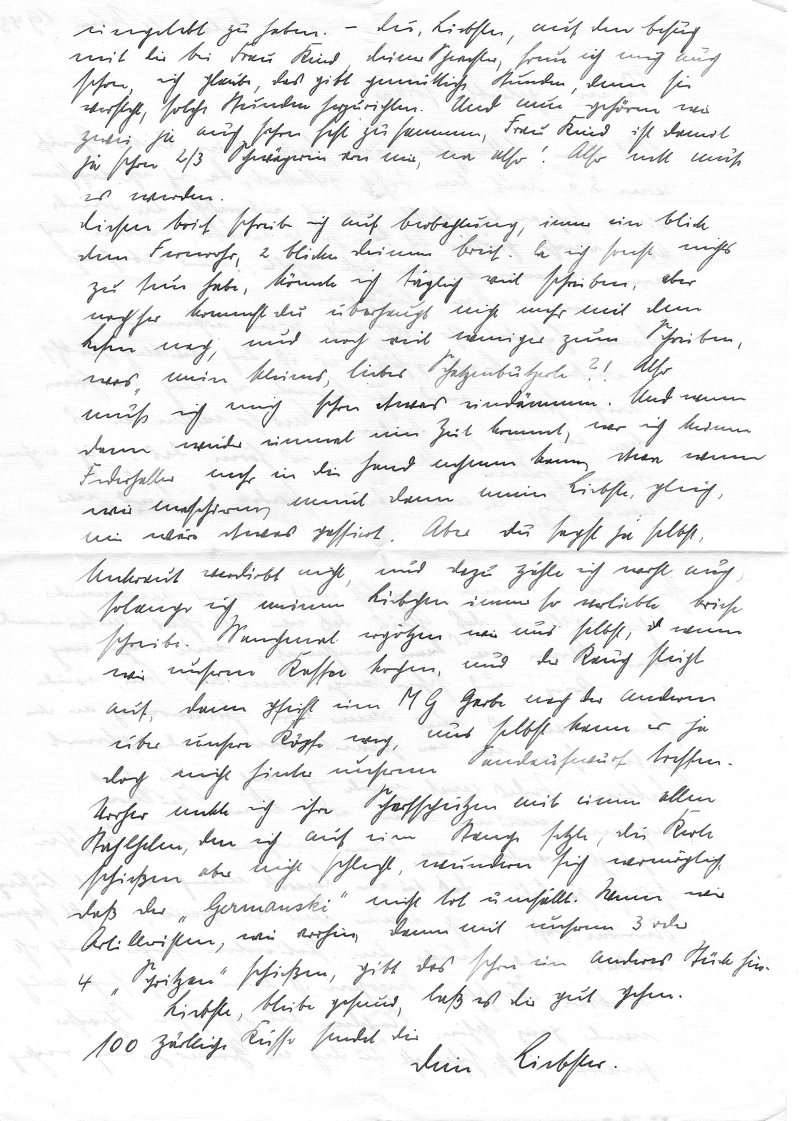 eingelebt zu haben. – Du, Liebste, auf den besuch
mit dir bei Frau Kind, deiner Schwester, freu ich mich auch
schon, ich glaube, das gibt gemütliche Stunden, denn sie
versteht, solche Stunden herzurichten. Und nun gehören wir
zwei ja auch schon fest zusammen, Frau Kind ist damit
ja schon 2/3 Schwägerin von mir, na also! Also nett muß
es werden.
diesen brief schreibe ich auf beobachtung, immer ein blick
dem Fernrohr, 2 blicke deinem brief. Da ich sonst nichts
zu tun habe, könnte ich täglich viel schreiben, aber
nachher kommst du überhaupt nicht mehr mit dem
lesen nach, und noch viel weniger zum Schreiben,
was, mein kleines, liebes ?! Also
muß ich mich schon etwas eindämmen. Und wenn
dann wieder einmal eine Zeit kommt, wo ich keinen
Federhalter mehr in die Hand nehmen kann, etwa wenn
wir marschieren, meint dann meine Liebste, gleich,
mir wäre etwas passiert. Aber du sagst ja selbst,
Unkraut verdirbt nicht, und dazu zähle ich wohl auch,
solange ich meinem Liebchen immer so verliebte briefe
schreibe. Manchmal ergötzen wir uns selbst, wenn
wir unseren Kaffee kochen, und der Rauch steigt
auf, dann pfeift eine MG Garbe nach der anderen
über unsere Köpfe weg, uns selbst kann er ja
doch nicht hinter unserem Sandaufwurf treffen.
Vorher neckte ich ihre Scharfschützen mit einem alten
Stahlhelm, den ich auf eine Stange setzte, die Kerle
schießen aber nicht schlecht, wundern sich womöglich
daß der „Germanski" nicht tot umfällt. Wenn wir
Artilleristen, wie vorhin, dann mit unseren 3 oder
4 „Spritzen" schießen, gibt das schon ein anderes Stück hin.
Liebste, bleibe gesund, laß es dir gut gehen.
100 zärtliche Küsse sendet dir
dein Liebster.